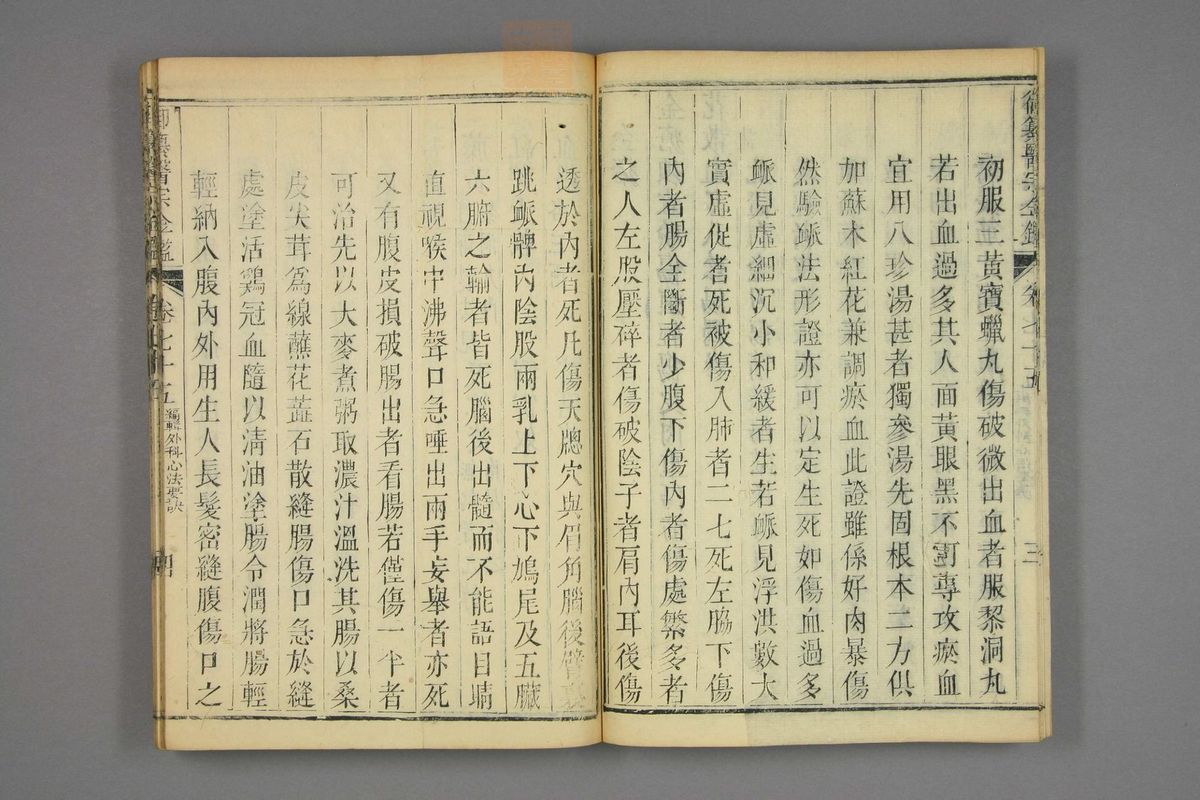 御纂醫宗金鑑 卷七十五 三
初服三黃寶蠟丸傷破微出血者服黎洞丸
若出血過多其人面黃眼黑不可專攻瘀血
宜用八珍湯甚者獨參湯先固根本二方俱
加蘇木紅花兼調瘀血此證雖係好肉暴傷
然驗脈法形證亦可以定生死如傷血過多
脈見虛細沉小和緩者生若脈見浮洪數大
實虛促者死被傷入肺者二七死左脇下傷
內者腸全斷者少腹下傷內者傷處繁多者
之人左股壓碎者傷破陰子者肩內耳後傷
透於內者死凡傷天䆫穴與眉角腦後臂裏
跳脈髀內陰股兩乳上下心下鳩尾及五臟
六腑之輸者皆死腦後出髓而不能語目睛
直視喉中沸聲口急唾出兩手妄舉者亦死
又有腹皮損破腸出者看腸若僅傷一半者
可治先以大麥煮粥取濃汁溫洗其腸以桑
皮尖茸為線蘸花蕋石散縫腸傷口急於縫
處塗活鷄冠血隨以清油塗腸令潤將腸輕
輕納入腹內外用生人長髮密縫腹傷口之
御纂醫宗金鑑 卷七十五 編輯外科心法要訣 四